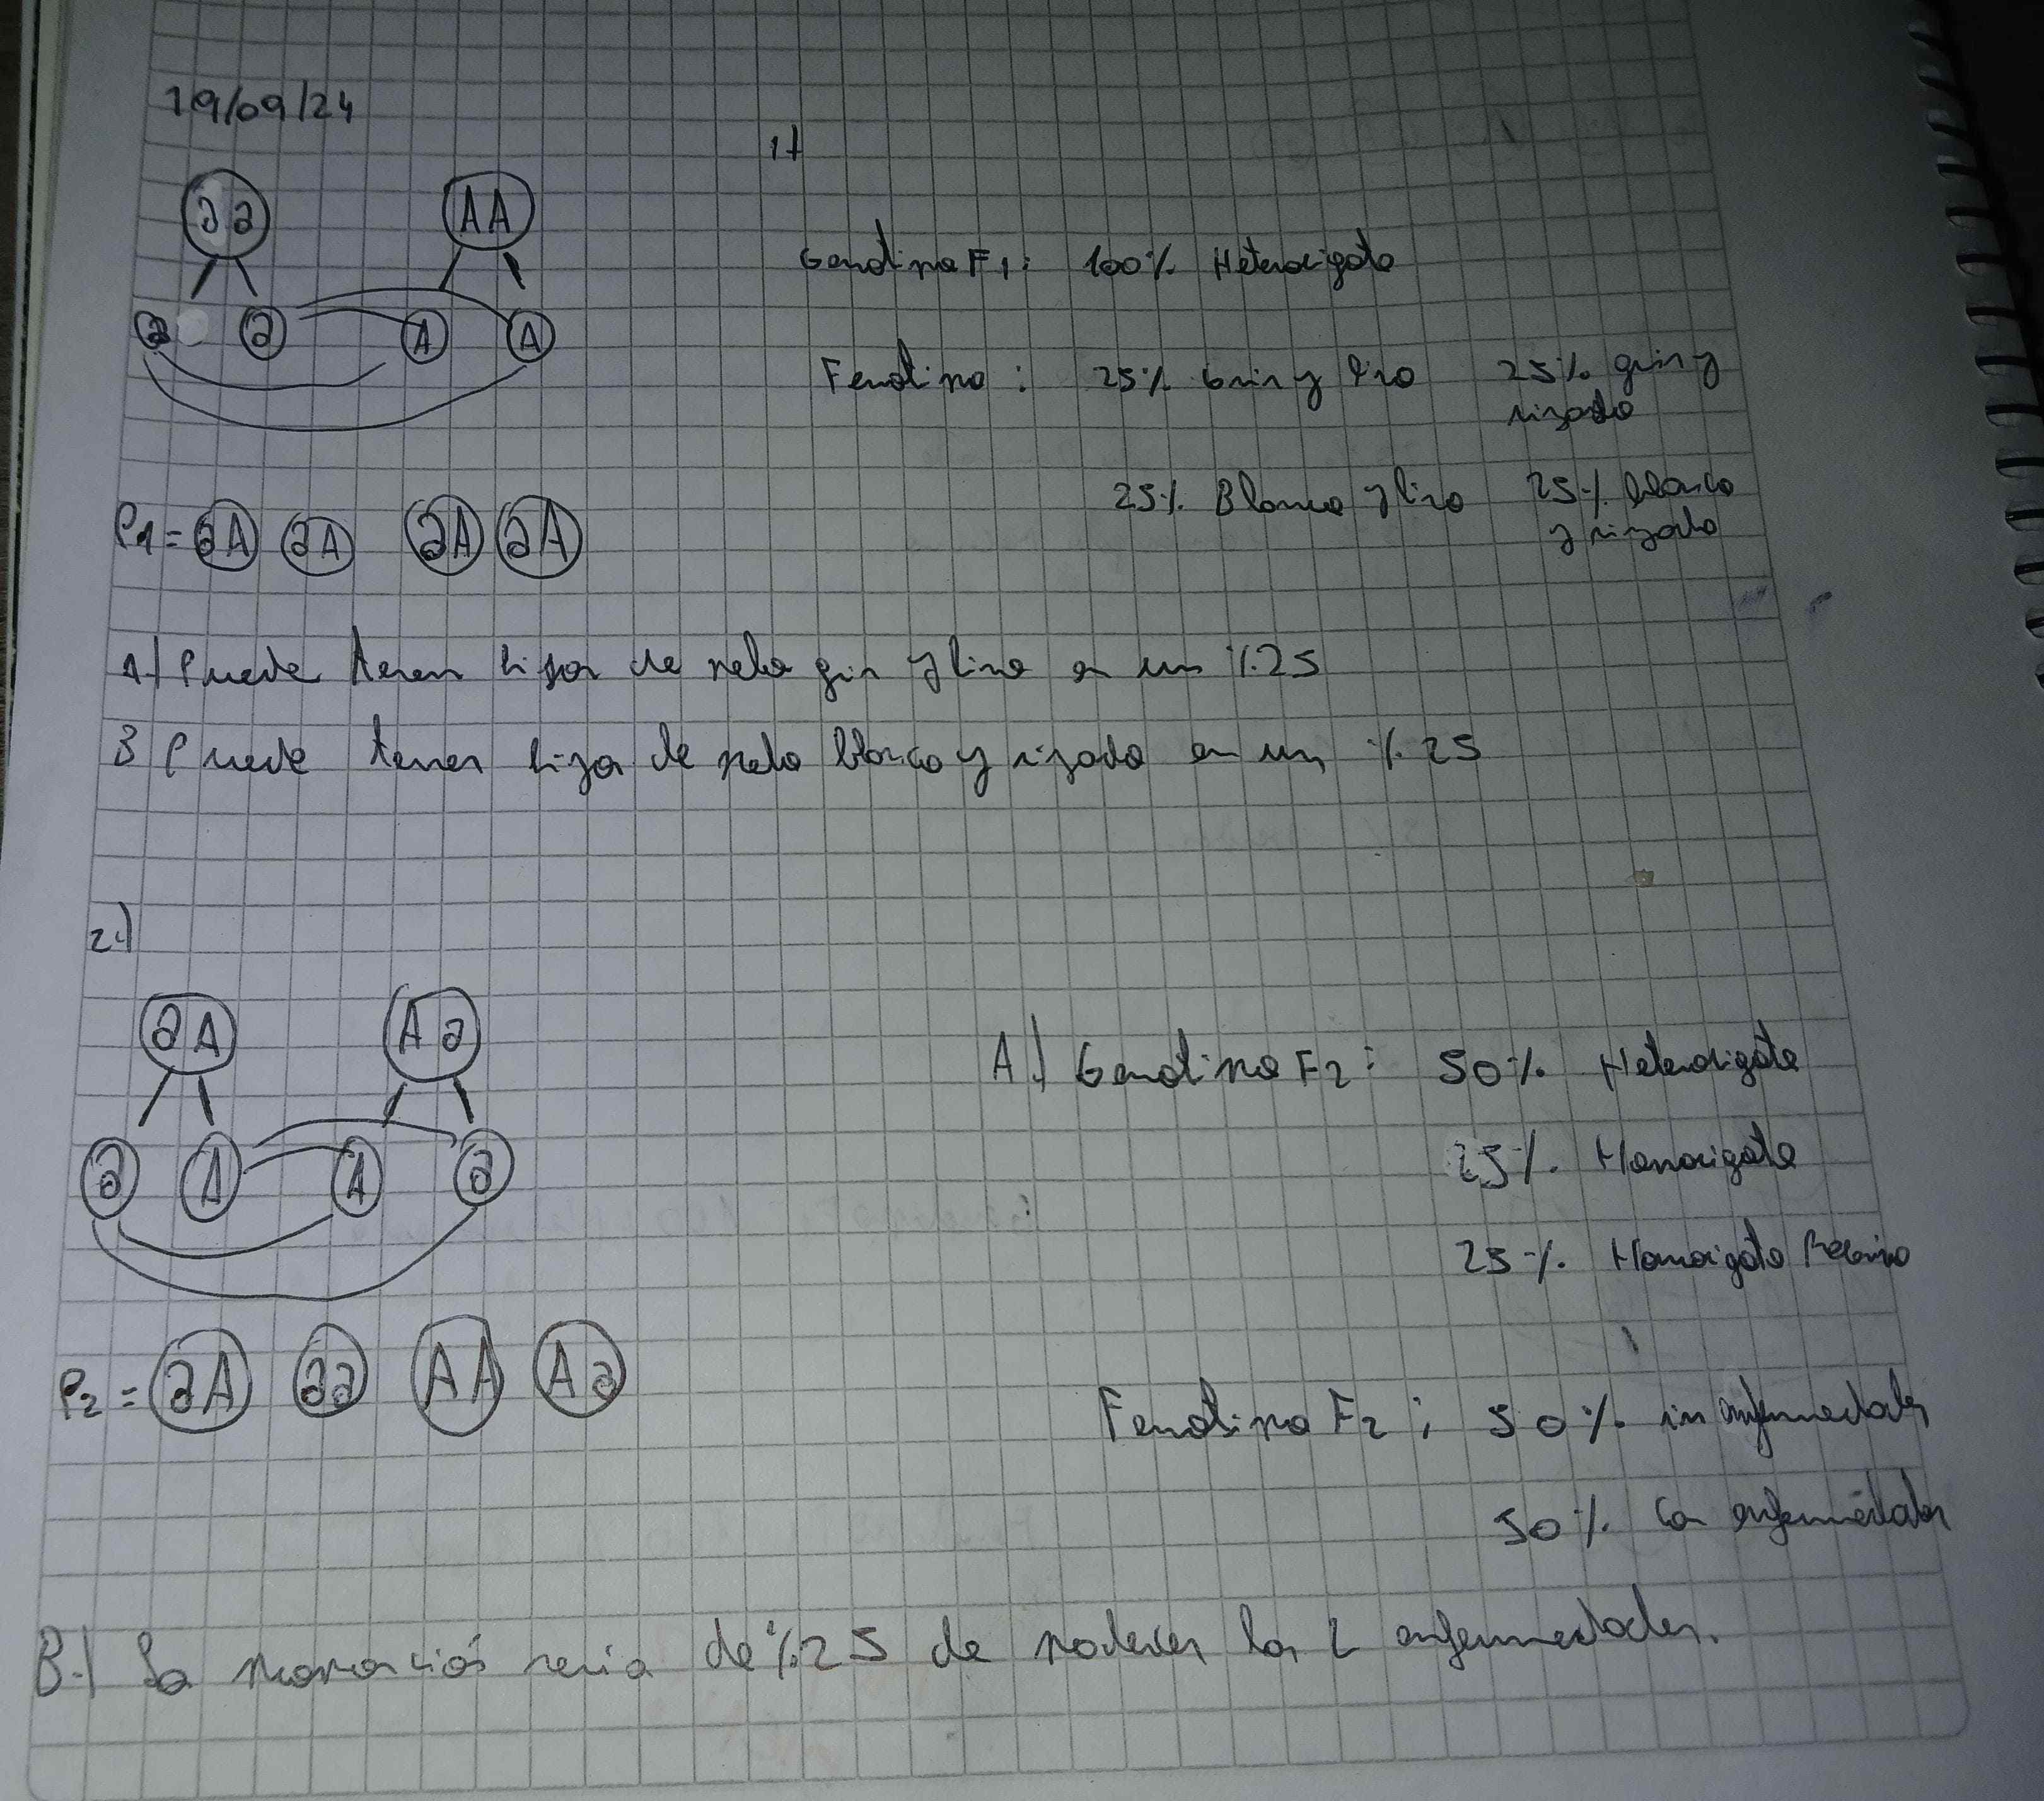 19/09/24
1)
aa AA
a a A A
P1= aA aA aA aA
Genotipo F1: 100% Heterocigoto
Fenotipo: 25% Gris y liso 25% gris y
rizado
25% Blanco y liso 25% blanco
y rizado
A) Puede tener hijos de pelo gris y liso en un %25
B) Puede tener hijos de pelo blanco y rizado en un %25
2.)
aA Aa
a A A a
P2= aA aa AA Aa
A.) Genotipo F2: 50% Heterocigoto
25% Homocigoto
25% Homocigoto Recesivo
Fenotipo F2: 50% sin enfermedades
50% Con enfermedades
B.) La sería de %25 de padecer las 2 enfermedades.